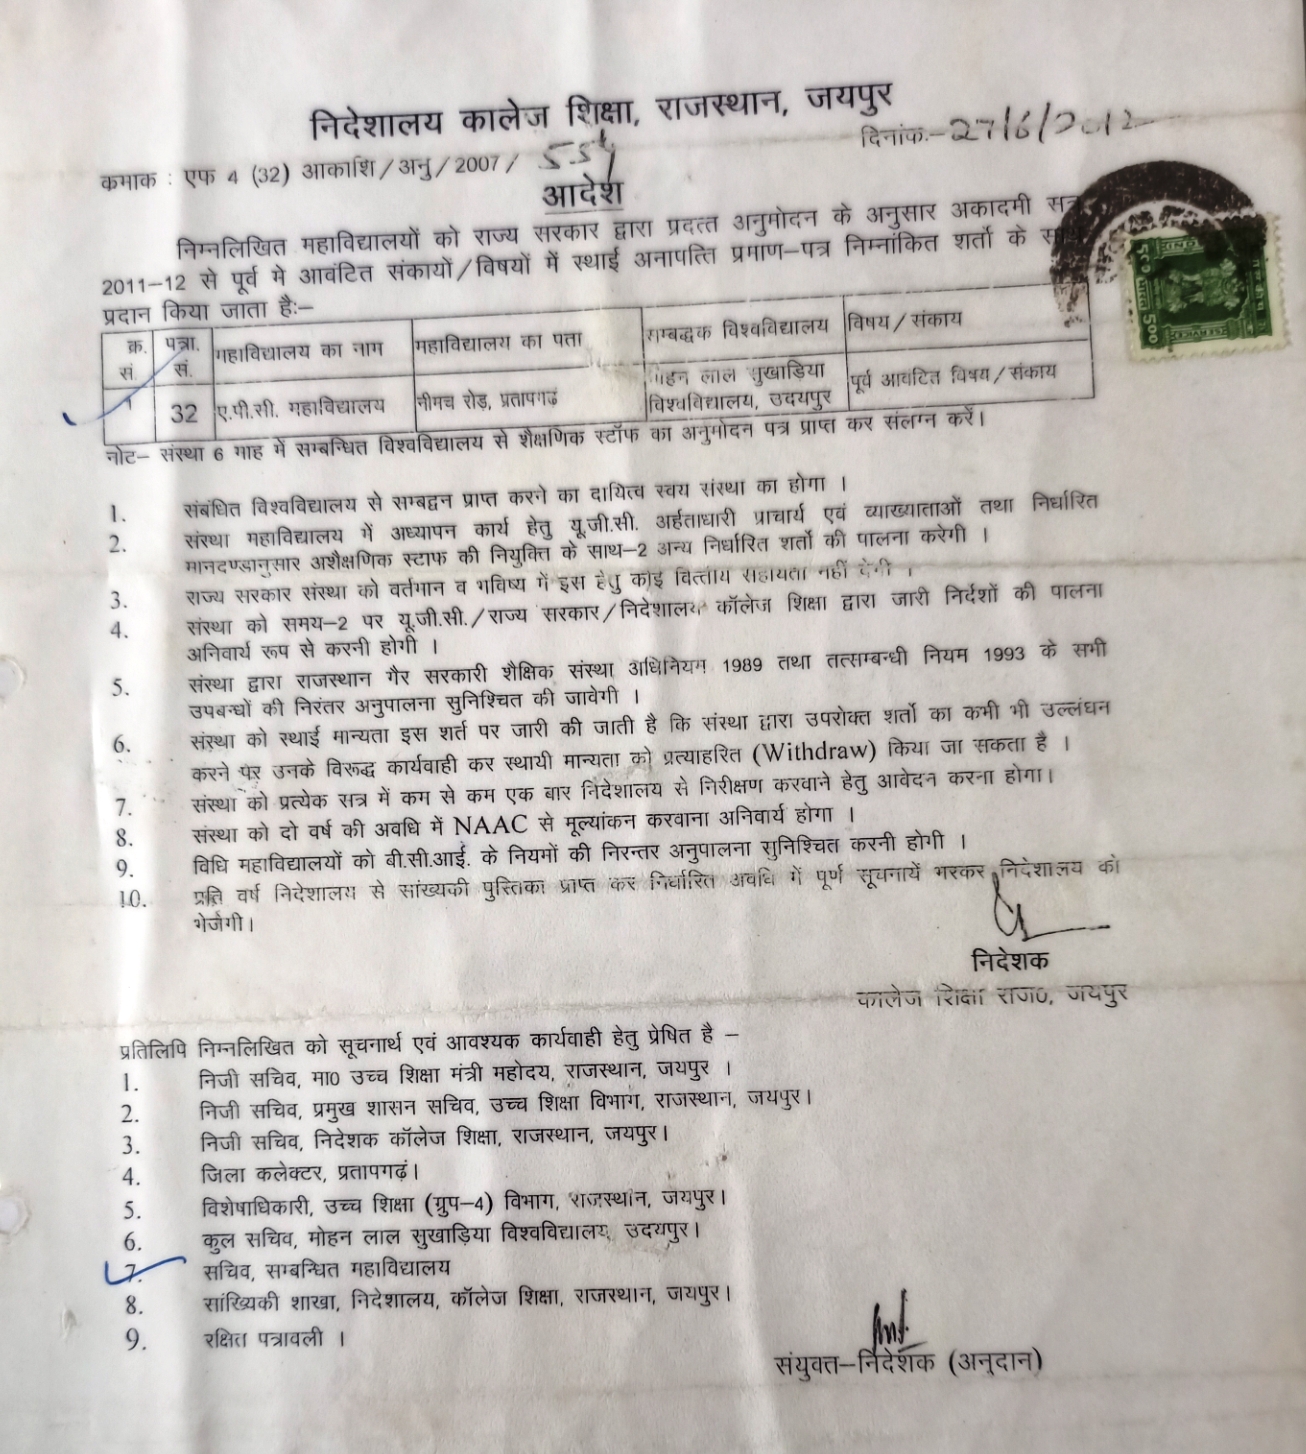 निदेशालय कालेज शिक्षा, राजस्थान, जयपुर
दिनांक:-27/6/2012
कमाक : एफ 4 (32) आकाशि/अनु/2007/
आदेश
निम्नलिखित महाविद्यालयों को राज्य सरकार द्वारा प्रदत्त अनुमोदन के अनुसार अकादमी सत्र
2011-12 से पूर्व मे आवंटित संकायों/विषयों में स्थाई अनापत्ति प्रमाण-पत्र निम्नांकित शर्तो के
प्रदान किया जाता है:-
क्र. सं. पत्रा. सं. महाविद्यालय का नाम महाविद्यालय का पता सम्बद्धक विश्वविद्यालय विषय/संकाय
1 32 ए.पी.सी. महाविद्यालय नीमच रोड, प्रतापगढ़ मोहन लाल सुखाड़िया विश्वविद्यालय, उदयपुर पूर्व आवंटित विषय/संकाय
नोट- संस्था 6 माह में सम्बन्धित विश्वविद्यालय से शैक्षणिक स्टॉफ का अनुमोदन पत्र प्राप्त कर संलग्न करें।
1. संबंधित विश्वविद्यालय से सम्बद्वन प्राप्त करने का दायित्व स्वय संस्था का होगा ।
2. संस्था महाविद्यालय में अध्यापन कार्य हेतु यू.जी.सी. अर्हताधारी प्राचार्य एवं व्याख्याताओं तथा निर्धारित
मानदण्डानुसार अशैक्षणिक स्टाफ की नियुक्ति के साथ-2 अन्य निर्धारित शर्तो की पालना करेगी ।
3. राज्य सरकार संस्था को वर्तमान व भविष्य में इस हेतु कोई वित्तीय सहायता नहीं देगी ।
4. संस्था को समय-2 पर यू.जी.सी./राज्य सरकार/निदेशालय कॉलेज शिक्षा द्वारा जारी निर्देशों की पालना
अनिवार्य रूप से करनी होगी ।
5. संस्था द्वारा राजस्थान गैर सरकारी शैक्षिक संस्था अधिनियम 1989 तथा तत्सम्बन्धी नियम 1993 के सभी
उपबन्धों की निरंतर अनुपालना सुनिश्चित की जावेगी ।
6. संस्था को स्थाई मान्यता इस शर्त पर जारी की जाती है कि संस्था द्वारा उपरोक्त शर्तो का कभी भी उल्लंघन
करने पर उनके विरूद्ध कार्यवाही कर स्थायी मान्यता को प्रत्याहरित (Withdraw) किया जा सकता है ।
7. संस्था को प्रत्येक सत्र में कम से कम एक बार निदेशालय से निरीक्षण करवाने हेतु आवेदन करना होगा।
8. संस्था को दो वर्ष की अवधि में NAAC से मूल्यांकन करवाना अनिवार्य होगा ।
9. विधि महाविद्यालयों को बी.सी.आई. के नियमों की निरन्तर अनुपालना सुनिश्चित करनी होगी ।
10. प्रति वर्ष निदेशालय से सांख्यकी पुस्तिका प्राप्त कर निर्धारित अवधि में पूर्ण सूचनायें भरकर निदेशालय को
भेजेगी।
निदेशक
कालेज शिक्षा राज0, जयपुर
प्रतिलिपि निम्नलिखित को सूचनार्थ एवं आवश्यक कार्यवाही हेतु प्रेषित है -
1. निजी सचिव, मा0 उच्च शिक्षा मंत्री महोदय, राजस्थान, जयपुर ।
2. निजी सचिव, प्रमुख शासन सचिव, उच्च शिक्षा विभाग, राजस्थान, जयपुर।
3. निजी सचिव, निदेशक कॉलेज शिक्षा, राजस्थान, जयपुर।
4. जिला कलेक्टर, प्रतापगढ़ं।
5. विशेषाधिकारी, उच्च शिक्षा (ग्रुप-4) विभाग, राजस्थान, जयपुर।
6. कुल सचिव, मोहन लाल सुखाड़िया विश्वविद्यालय, उदयपुर।
7. सचिव, सम्बन्धित महाविद्यालय
8. सांख्यिकी शाखा, निदेशालय, कॉलेज शिक्षा, राजस्थान, जयपुर।
9. रक्षित पत्रावली ।
संयुक्त-निदेशक (अनुदान)